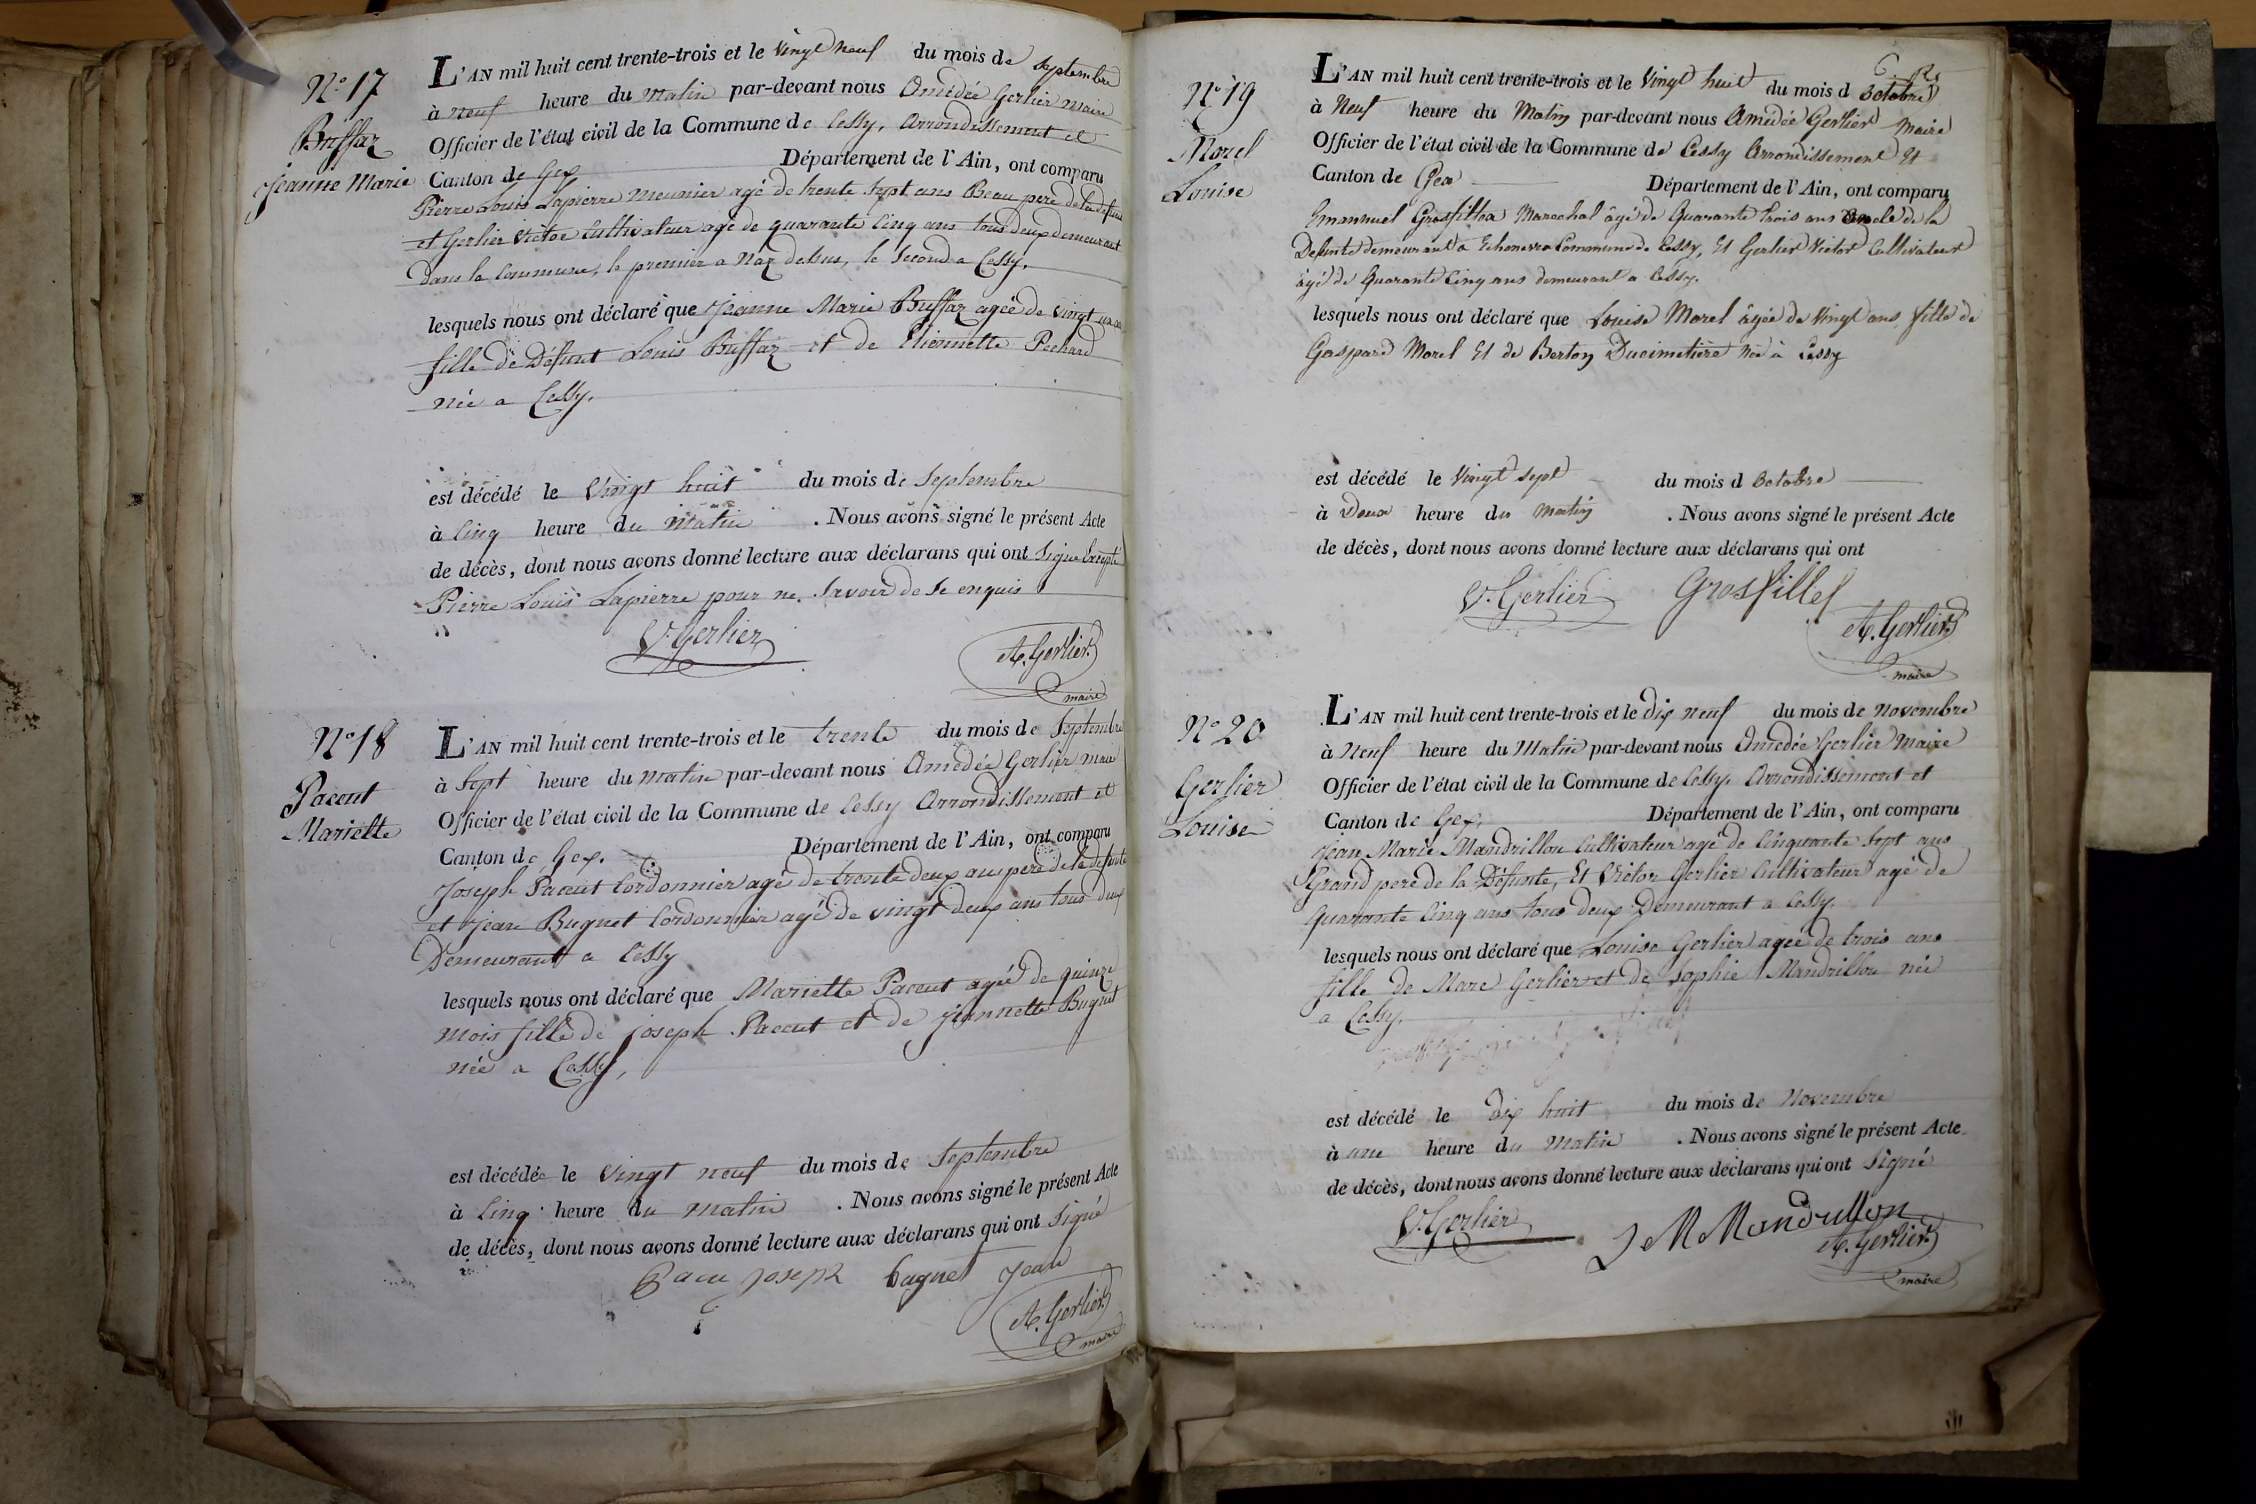 N.o 17
Buffaz
Jeanne Marie
L'AN mil huit cent trente-trois et le vingt neuf du mois de Septembre
à neuf heure du matin par-devant nous Amédée Gerlier maire
Officier de l'état civil de la Commune de Cessy, Arrondissement et
Canton de Gex Département de l'Ain, ont comparu
Pierre Louis Lapierre meunier agé de trente sept ans Beau pere de la defunte
et Gerlier Victor Cultivateur agé de quarante Cinq ans tous deux demeurant
dans la Commune, le premier a Naz dessus, le Second a Cessy.
lesquels nous ont déclaré que Jeanne Marie Buffaz agée de vingt un ans
fille de Défunt Louis Buffaz et de Etiennette Pechard
née a Cessy.
est décédé le vingt huit du mois de Septembre
à Cinq heure du Matin . Nous avons signé le présent Acte
de décès, dont nous avons donné lecture aux déclarans qui ont Signé Excepté
Pierre Louis Lapierre pour ne Savoir de ce enquis
V. Gerlier
A. Gerlier
maire
N.o 18
Pacout
Mariette
L'AN mil huit cent trente-trois et le trente du mois de Septembre
à Sept heure du matin par-devant nous Amédée Gerlier maire
Officier de l'état civil de la Commune de Cessy Arrondissement et
Canton de Gex. Département de l'Ain, ont comparu
Joseph Pacout Cordonnier agé de trente deux ans pere de la defunte
et Jean Buguet Cordonnier agé de vingt deux ans tous deux
Demeurant a Cessy
lesquels nous ont déclaré que Mariette Pacout agée de quinze
mois fille de joseph Pacout et de jeannette Buguet
née a Cessy,
est décédée le vingt neuf du mois de Septembre
à Cinq heure du matin . Nous avons signé le présent Acte
de décès, dont nous avons donné lecture aux déclarans qui ont Signé
Pacu joseph buguet Jean
A. Gerlier
maire
N.o 19
Morel
Louise
L'AN mil huit cent trente-trois et le Vingt huit du mois d Octobre
à Neuf heure du Matin par-devant nous Amédée Gerlier Maire
Officier de l'état civil de la Commune de Cessy Arrondissement Et
Canton de Gex Département de l'Ain, ont comparu
Emannuel Grosfillex Marechal âgé de Quarante trois ans Oncle de la
Défunte demeurant a Echenevex Commune de Cessy, Et Gerlier Victor Cultivateur
âgé de Quarante Cinq ans demeurant a Cessy.
lesquels nous ont déclaré que Louise Morel âgée de Vingt ans fille de
Gaspard Morel Et de Berton Ducimetière née à Cessy
est décédé le Vingt Sept du mois d Octobre
à Deux heure du Matin . Nous avons signé le présent Acte
de décès, dont nous avons donné lecture aux déclarans qui ont
V. Gerlier Grosfillex
A. Gerlier
maire
N.o 20
Gerlier
Louise
L'AN mil huit cent trente-trois et le dix neuf du mois de Novembre
à Neuf heure du Matin par-devant nous Amédée Gerlier Maire
Officier de l'état civil de la Commune de Cessy. Arrondissement et
Canton de Gex. Département de l'Ain, ont comparu
Jean Marie Mandrillon Cultivateur agé de Cinquante Sept ans
Grand pere de la Défunte, Et Victor Gerlier Cultivateur agé de
Quarante Cinq ans tous deux Demeurant a Cessy.
lesquels nous ont déclaré que Louise Gerlier agée de trois ans
fille de Marc Gerlier et de Sophie Mandrillon née
a Cessy.
est décédé le dix huit du mois de Novembre
à une heure du Matin . Nous avons signé le présent Acte
de décès, dont nous avons donné lecture aux déclarans qui ont Signé
V. Gerlier J M Mandrillon
A. Gerlier
maire